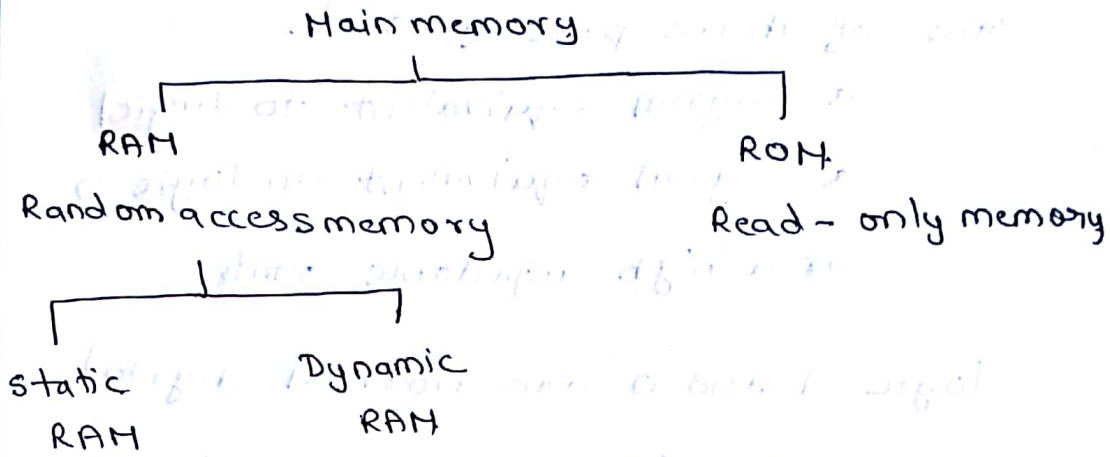 Main memory
RAM
ROM
Random access memory
Read - only memory
static
RAM
Dynamic
RAM